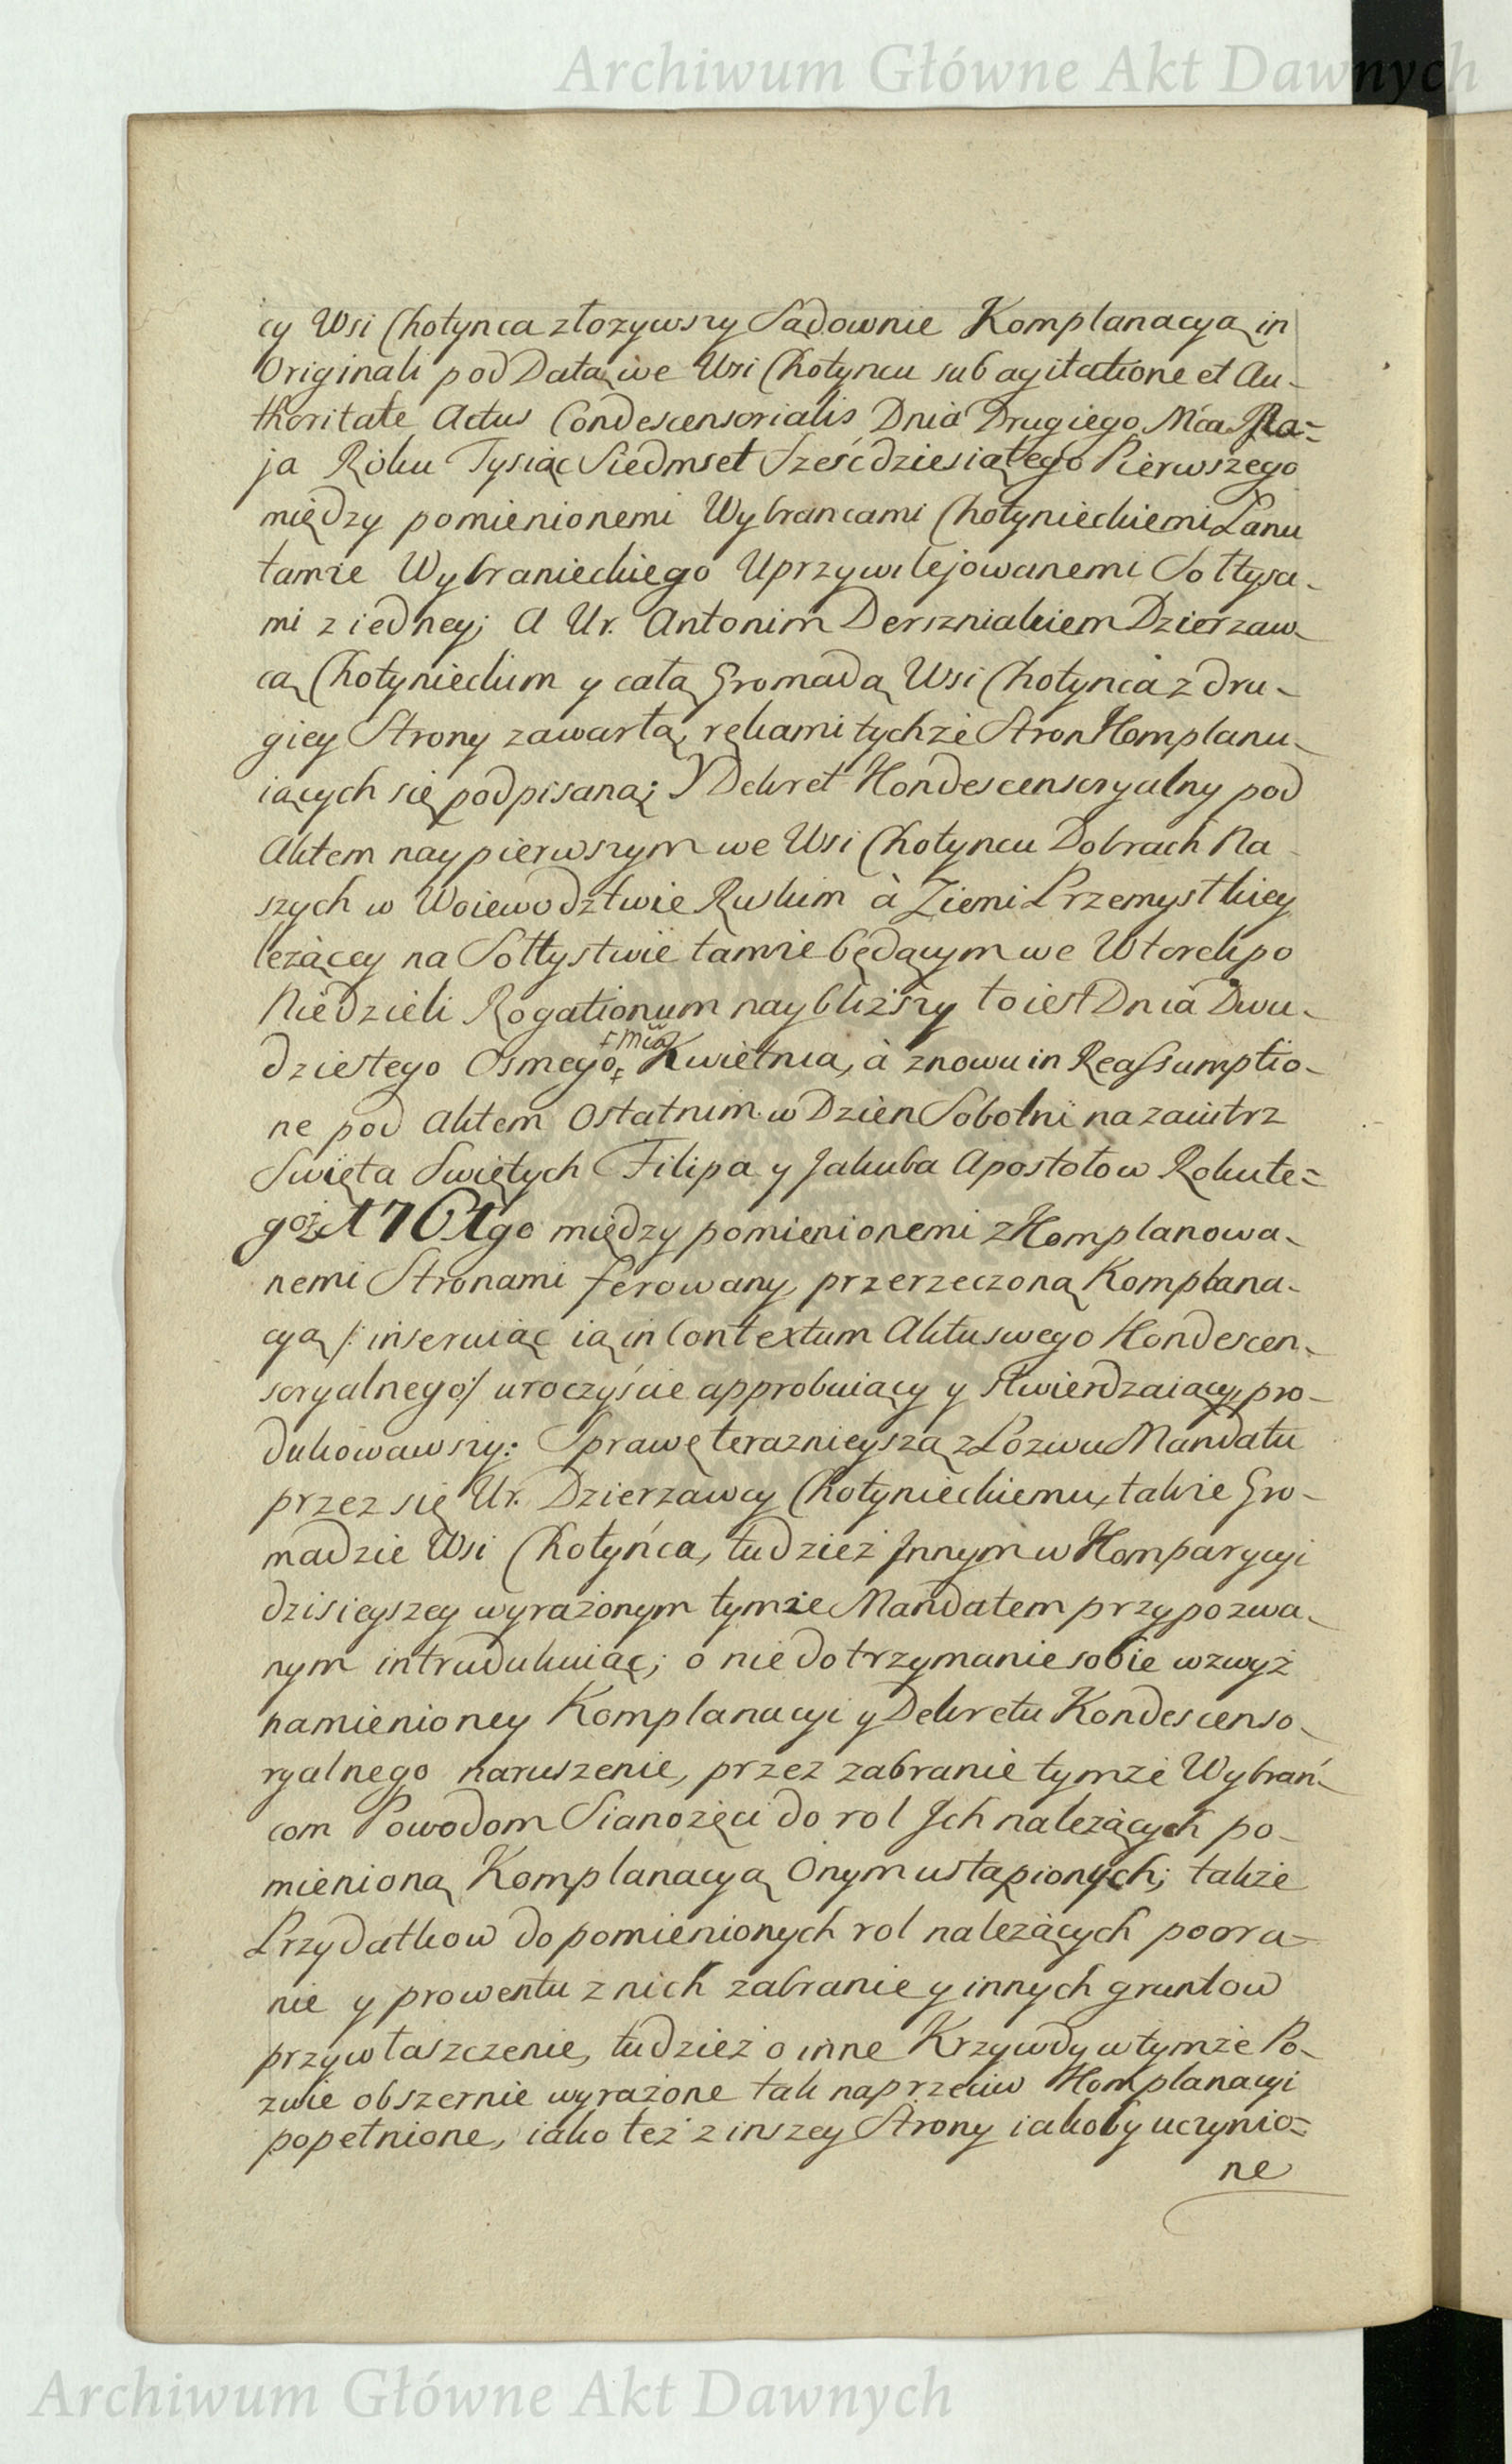 Archiwum Główne Akt Dawnych
cy Wsi Chotynca złożywszy Sądownie Komplanacyą in
Originali pod Datą we Wsi Chotyncu sub agitatione et Au-
thoritate Actus Condescensorialis Dnia Drugiego Mca Ma=
ja Roku Tysiąc Siedmset Sześcdziesiątego Pierwszego
między pomienionemi Wybrancami Chotynieckiemi Łanu
tamże Wybranieckiego Uprzywilejowanemi Sołtysa-
mi z iedney; a Ur. Antonim Derszniakiem Dzierzaw-
cą Chotynieckim y całą Gromadą Wsi Chotynca z dru-
giey Strony zawartą, rękami tychże Stron Komplanu-
iących się podpisaną; Y Dekret Kondescensoryalny pod
Aktem naypierwszym we Wsi Chotyncu Dobrach Na-
szych w Woiewodztwie Ruskim a Ziemi Przemyslkiey
leżącey na Sołtystwie tamże będącym we Wtorek po
Niedzieli Rogationum naybliższy to iest Dnia Dwu-
dziestego Osmego Kwietnia, à znowu in Reassumptio-
ne pod Aktem Ostatnim w Dzien Sobotni nazaiutrz
Swięta Swiętych Filipa y Jakuba Apostołow Roku te=
goż 1761go między pomienionemi zKomplanowa-
nemi Stronami ferowany, przerzeczoną Komplana-
cyą /: inseruiąc ią in Contextum Aktu swego Kondescen-
soryalnego :/ uroczyście approbuiący y stwierdzaiący, pro-
dukowawszy: Sprawę teraznieyszą z Pozwu Mandatu
przez się Ur. Dzierzawcy Chotynieckiemu, także Gro-
madzie Wsi Chotyńca, tudzież Innym w Komparycyi
dzisieyszey wyrażonym tymże Mandatem przypozwa-
nym intrudukuiąc; o niedotrzymanie sobie wzwyż
namienioney Komplanacyi y Dekretu Kondescenso-
ryalnego naruszenie, przez zabranie tymże Wybrań-
com Powodom Sianożęci do rol Ich należących po-
mienioną Komplanacyą Onym ustąpionych; także
Przydatkow do pomienionych rol należących poora-
nie y prowentu z nich zabranie y innych gruntow
przywłaszczenie, tudzież o inne Krzywdy w tymże Po-
zwie obszernie wyrażone tak naprzeciw Komplanacyi
popełnione, iako też z inszey Strony iakoby uczynio=
ne
Archiwum Główne Akt Dawnych